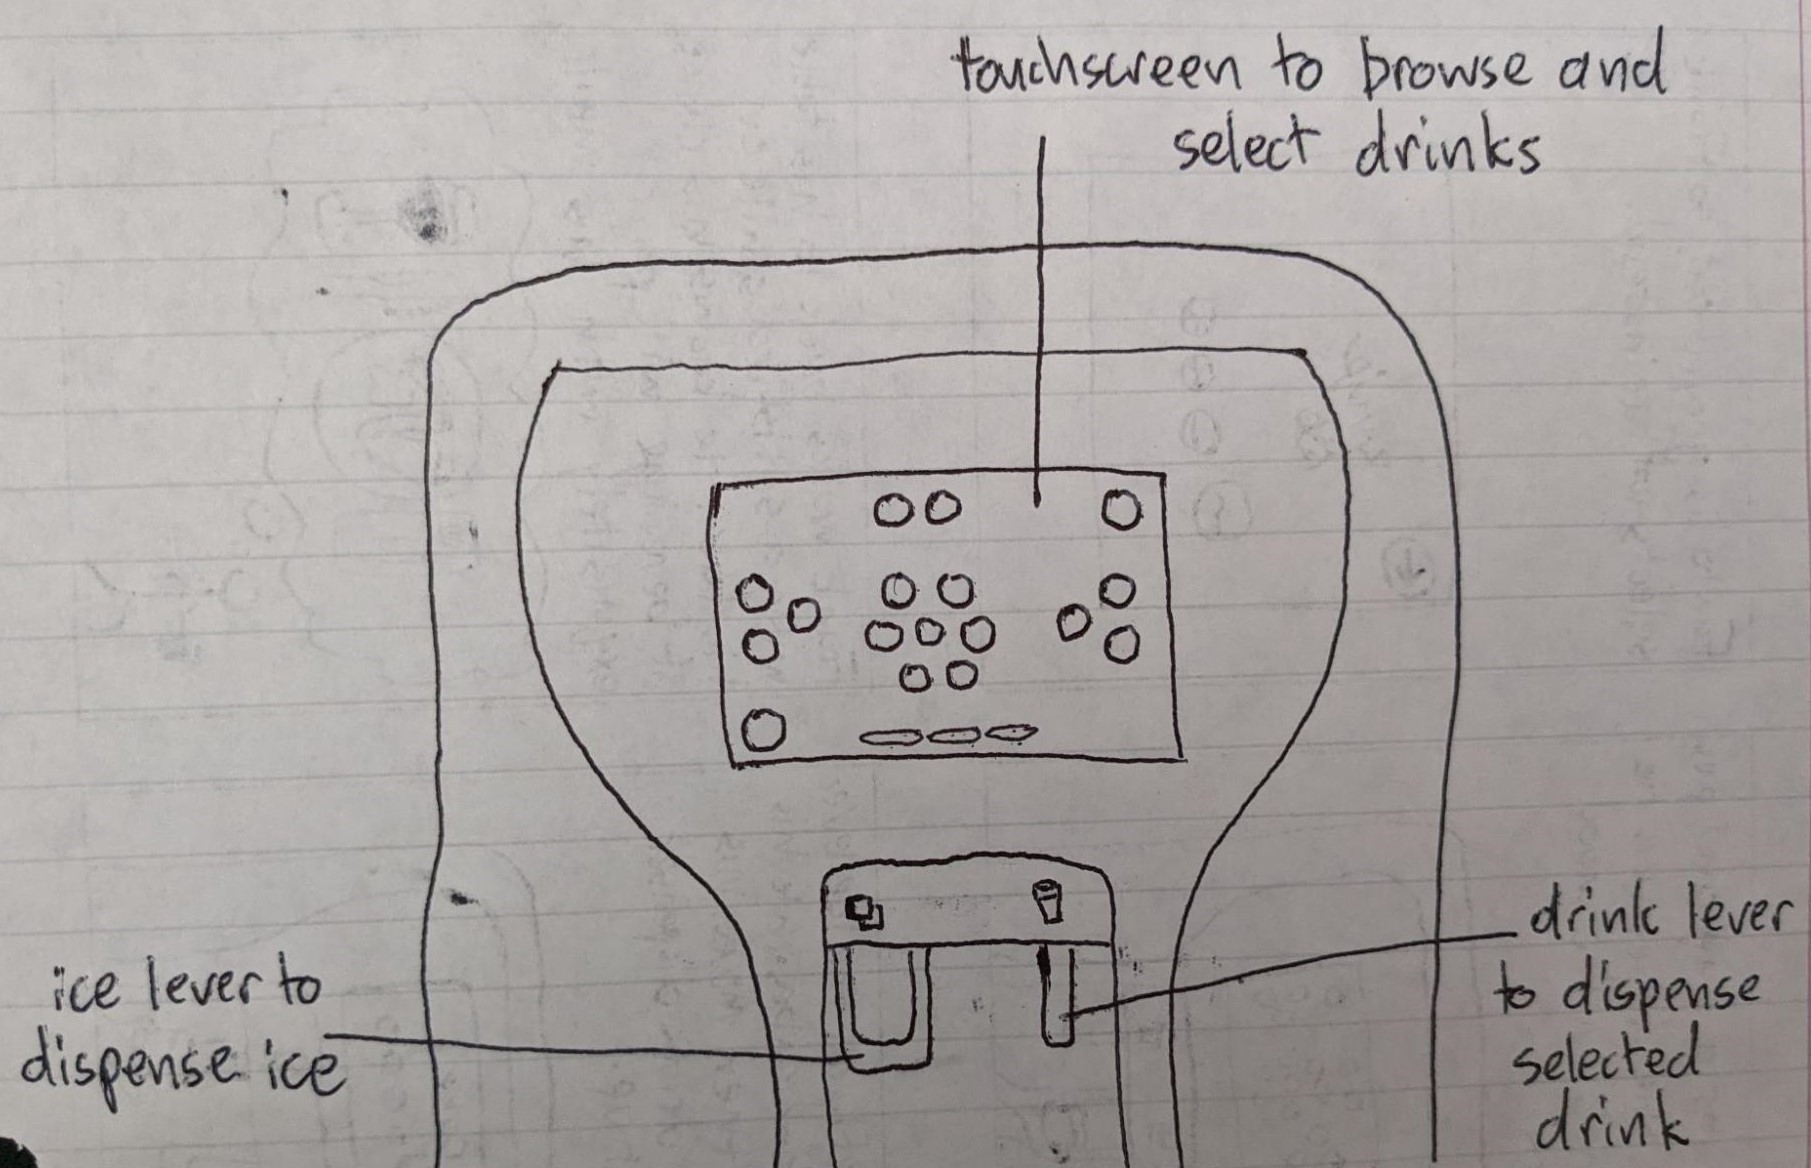 touchscreen to browse and
select drinks
ice lever to
dispense ice
drink lever
to dispense
selected
drink